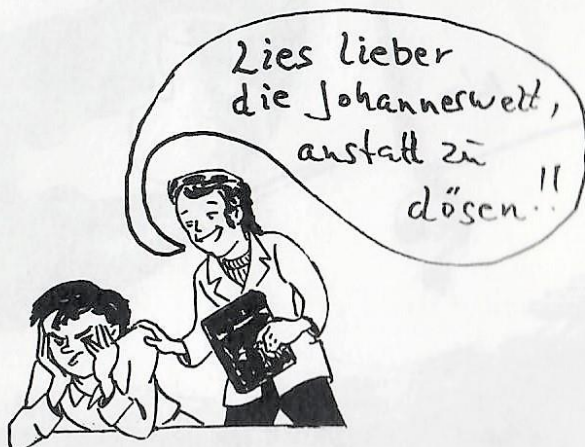 Lies lieber
die Johanneswelt,
anstatt zu
dösen!!